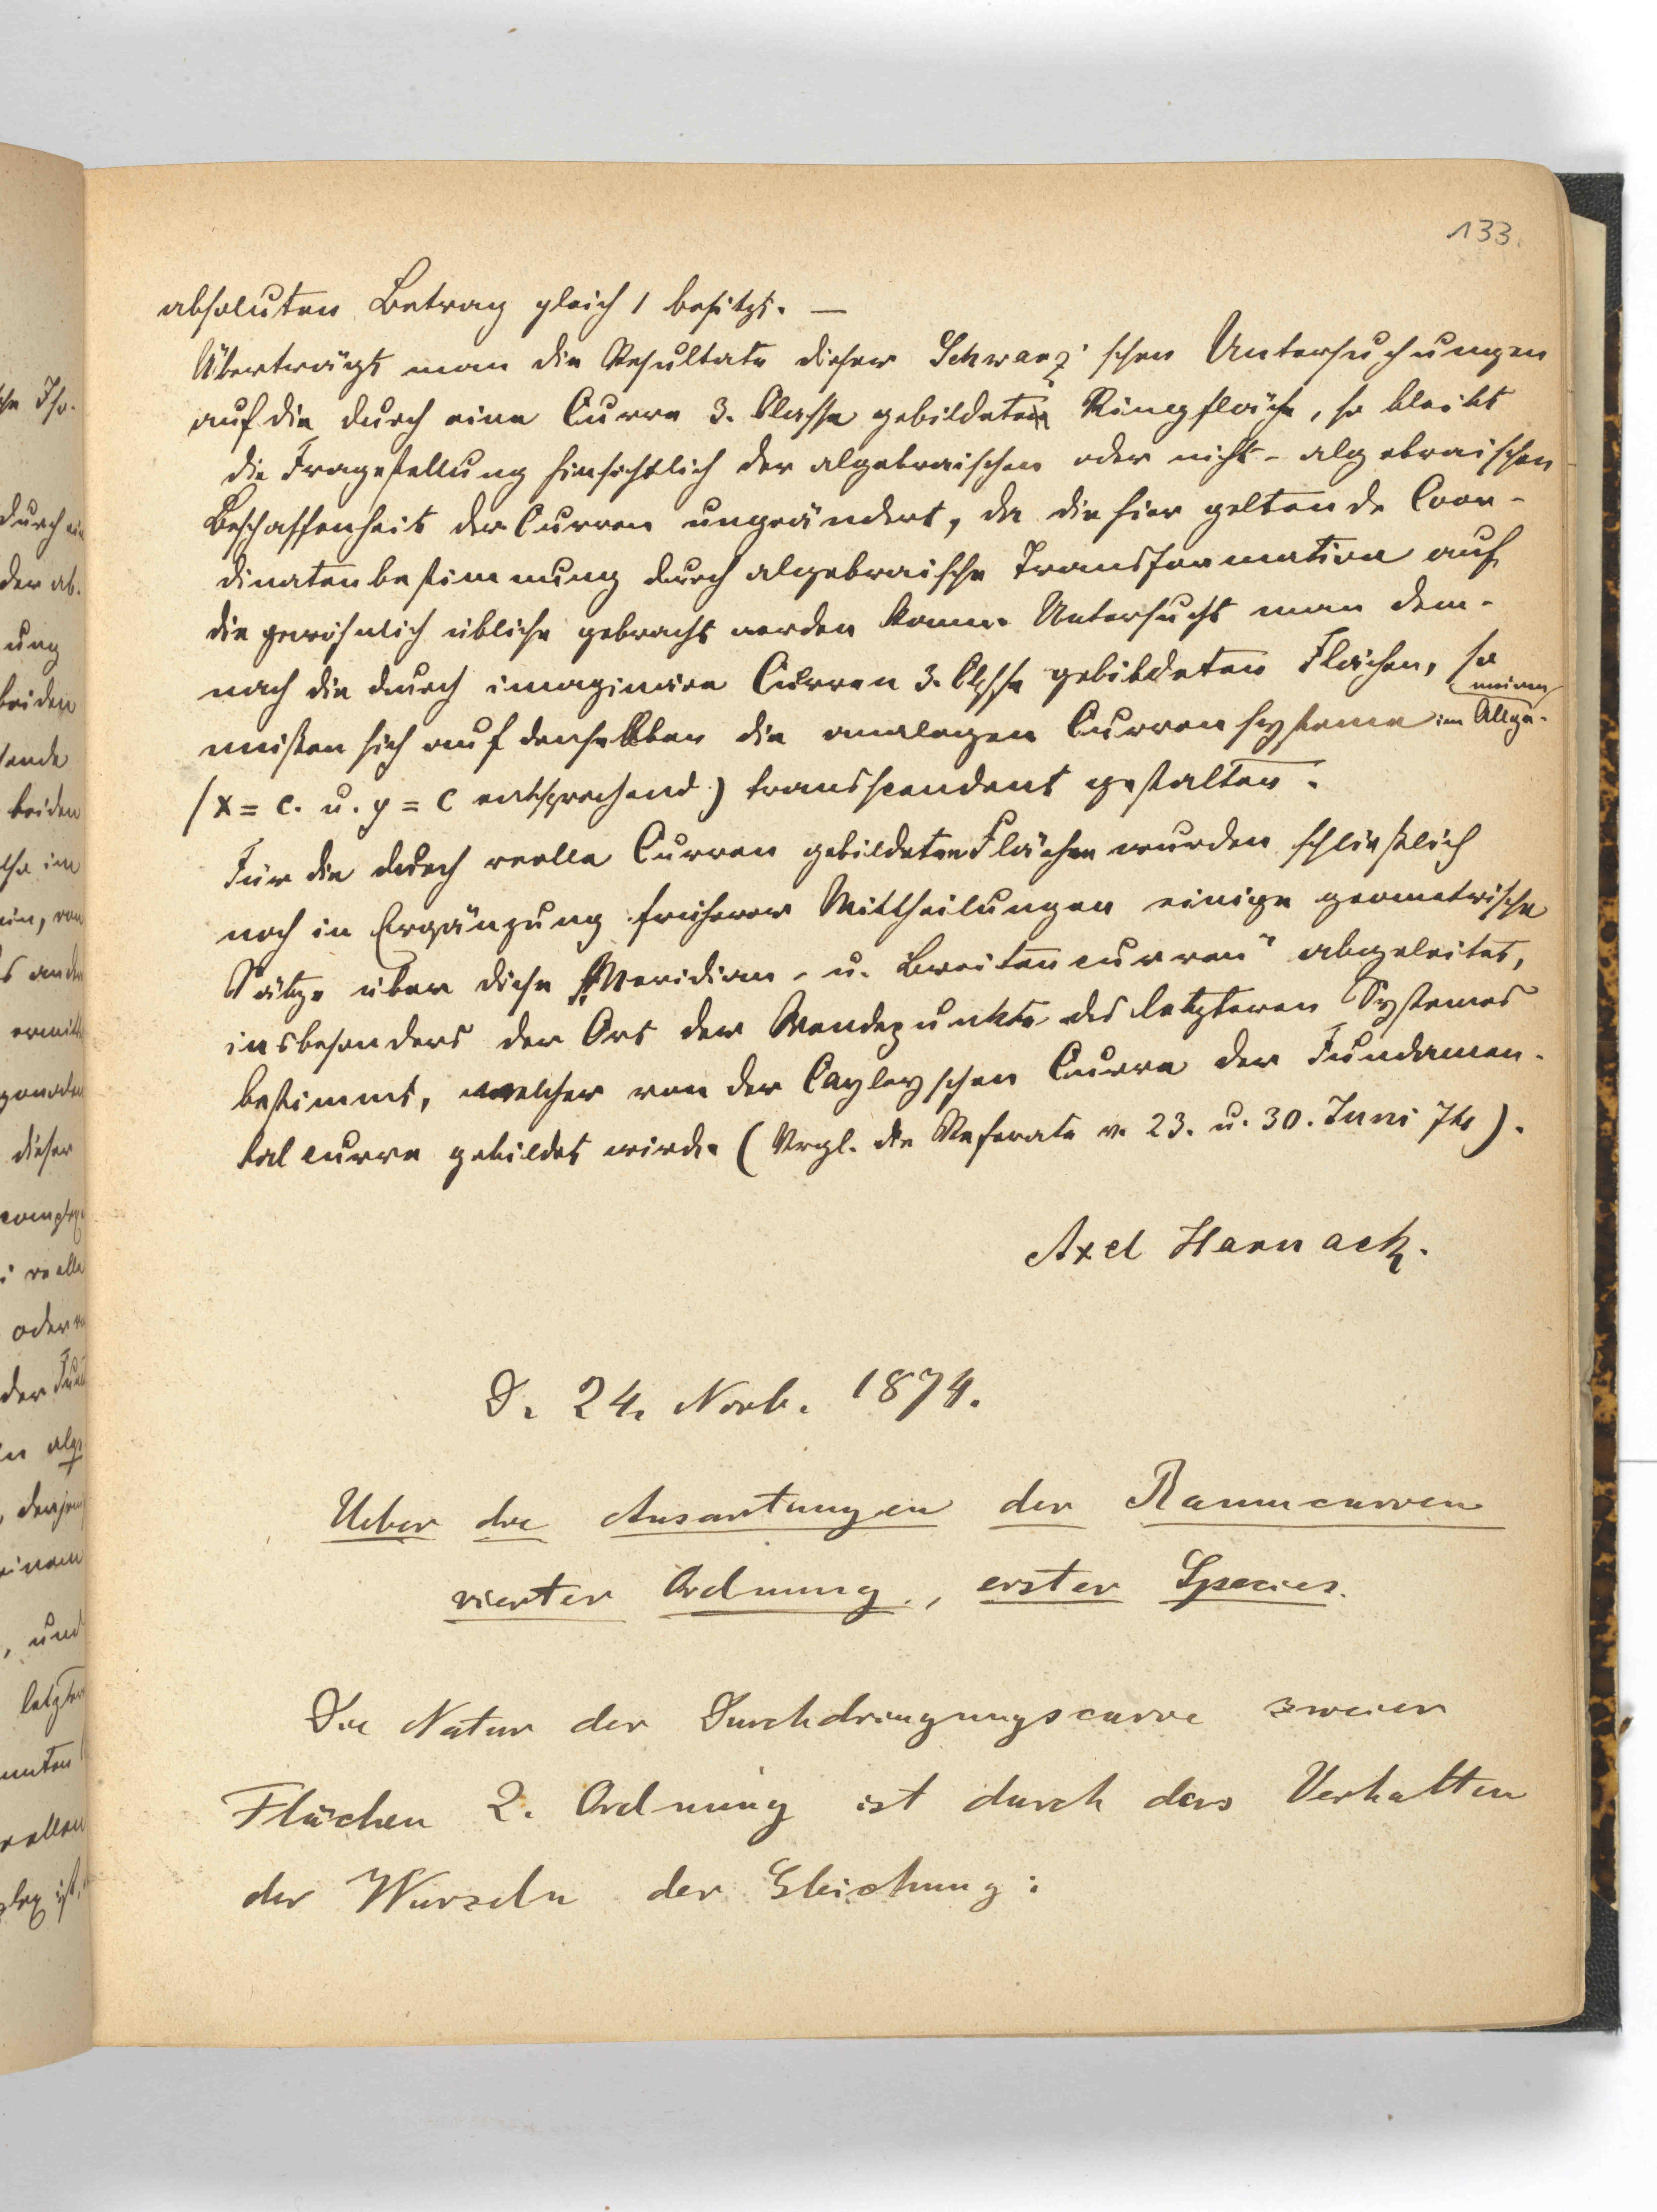 133.
absoluten Betrag gleich 1 besitzt. —
Überträgt man die Resultate dieser Schwarz'schen Untersuchungen
auf die durch eine Curve 3. Classe gebildete Ringfläche, so bleibt
die Fragestellung hinsichtlich der algebraischen oder nicht-algebraischen
Beschaffenheit der Curven ungeändert, da die hier geltende Coor-
dinatenbestimmung durch algebraische Transformation auf
die gewöhnlich übliche gebracht werden kann. Untersucht man dem-
nach die durch imaginäre Curven 3. Classe gebildeten Flächen, so
müssen sich auf denselben die analogen Curvensysteme im Allge-
meinen
(x = c. u. y = c entsprechend) transscendent gestalten.
Für die durch reelle Curven gebildeten Flächen wurden schließlich
noch in Ergänzung früherer Mittheilungen einige geometrische
Sätze über diese „Meridian- u. Breitencurven“ abgeleitet,
insbesonders der Ort der Wendepunkte des letzteren Systemes
bestimmt, welcher von der Cayleyschen Curve der Fundamen-
talcurve gebildet wird. (Vrgl. die Referate v. 23. u. 30. Juni 74).
Axel Harnack.
D. 24. Novb. 1874.
Ueber die Ausartungen der Raumcurven
vierter Ordnung, erster Species.
Die Natur der Durchdringungscurve zweier
Flächen 2. Ordnung ist durch das Verhalten
der Wurzeln der Gleichung:
durch ein
der ab-
ung
beiden
beiden
dieser
oder
und